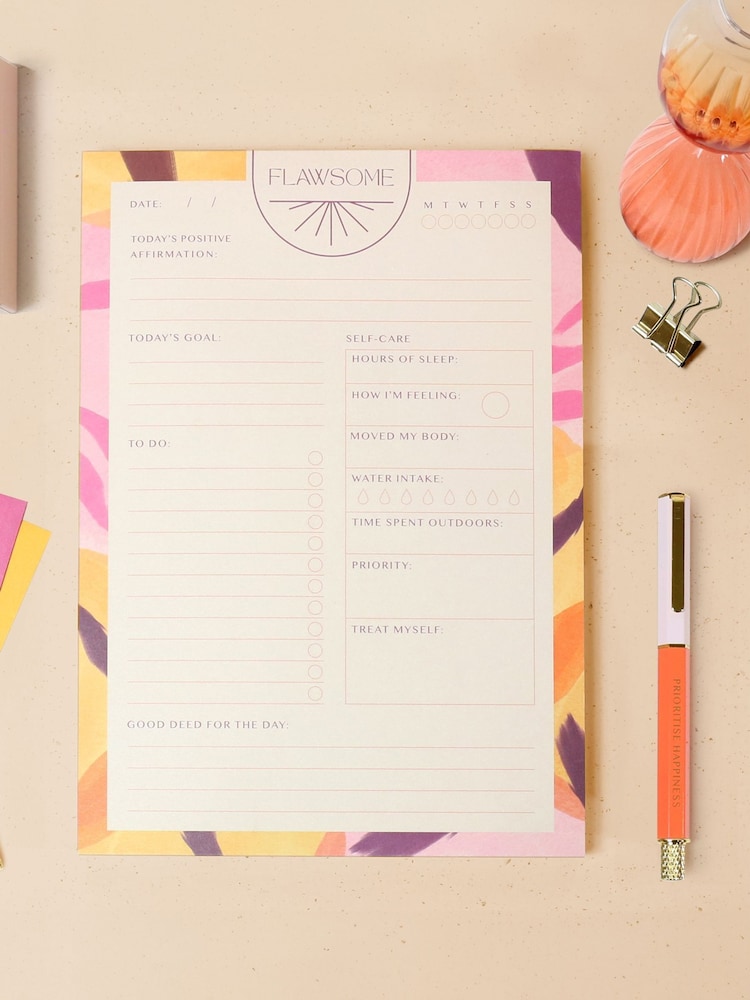 FLAWSOME
DATE: / /
M T W T F S S
TODAY'S POSITIVE
AFFIRMATION:
TODAY'S GOAL:
TO DO:
SELF-CARE
HOURS OF SLEEP:
HOW I'M FEELING:
MOVED MY BODY:
WATER INTAKE:
TIME SPENT OUTDOORS:
PRIORITY:
TREAT MYSELF:
GOOD DEED FOR THE DAY:
PRIORITISE HAPPINESS